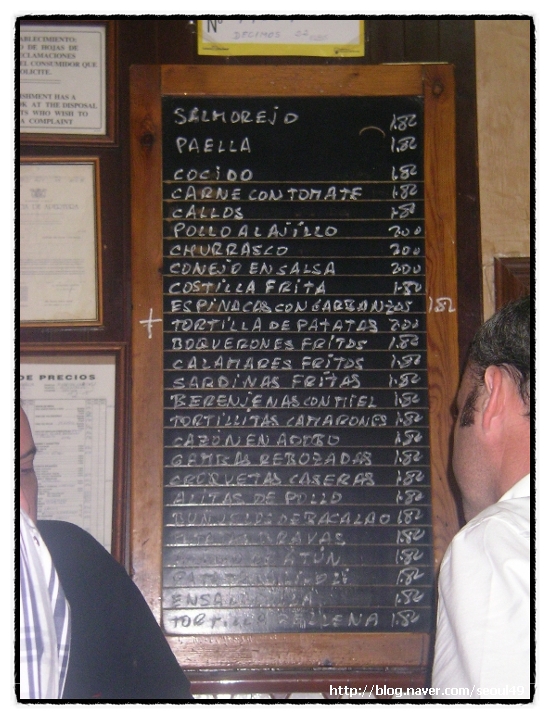 Nº
DECIMOS
ABLECIMIENTO:
O DE HOJAS DE
ECLAMACIONES
EL CONSUMIDOR QUE
OLICITE.
ISHMENT HAS A
OK AT THE DISPOSAL
TS WHO WISH TO
A COMPLAINT
DE PRECIOS
SALMOREJO 1.80
PAELLA 1.80
COCIDO 1.80
CARNE CON TOMATE 1.80
CALLOS 1.80
POLLO AL AJILLO 2.00
CHURRASCO 2.00
CONEJO EN SALSA 2.00
COSTILLA FRITA 1.80
ESPINACAS CON GARBANZOS 1.80
TORTILLA DE PATATAS 2.00
BOQUERONES FRITOS 1.80
CALAMARES FRITOS 1.80
SARDINAS FRITAS 1.80
BERENJENAS CON MIEL 1.80
TORTILLITAS CAMARONES 1.80
CAZON EN ADOBO 1.80
GAMBAS REBOZADAS 1.80
CROQUETAS CASERAS 1.80
ALITAS DE POLLO 1.80
BACALAO 1.80
BRAVAS 1.80
ATÚN 1.80
1.80
1.80
RELLENA 1.80
http://blog.naver.com/seoul49